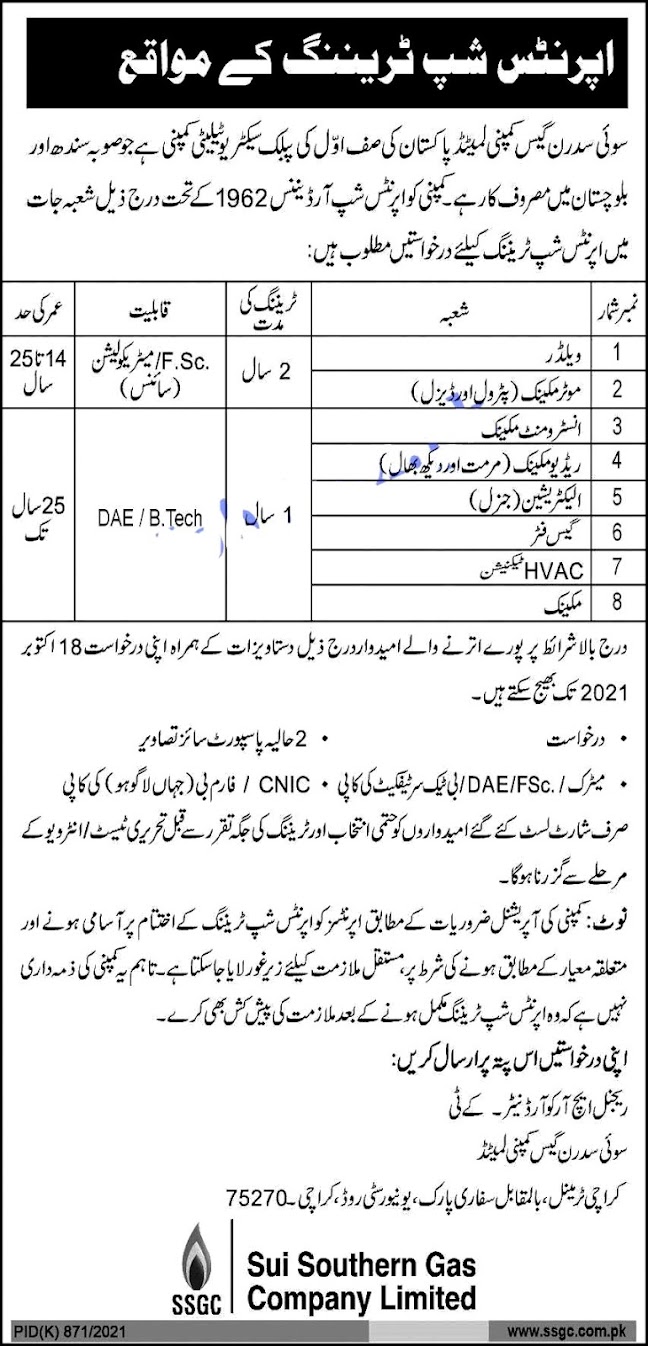 اپرنٹس شپ ٹریننگ کے مواقع
سوئی سدرن گیس کمپنی لمیٹڈ پاکستان کی صف اوّل کی پبلک سیکٹر یوٹیلیٹی کمپنی ہے جو صوبہ سندھ اور
بلوچستان میں مصروف کار ہے۔ کمپنی کو اپرنٹس شپ آرڈیننس 1962 کے تحت درج ذیل شعبہ جات
میں اپرنٹس شپ ٹریننگ کیلئے درخواستیں مطلوب ہیں:
نمبر شمار شعبہ ٹریننگ کی مدت قابلیت عمر کی حد
1 ویلڈر 2 سال F.Sc./میٹریکولیشن (سائنس) 14 تا 25 سال
2 موٹر مکینک (پٹرول اور ڈیزل)
3 انسٹرومنٹ مکینک 1 سال DAE / B.Tech 25 سال تک
4 ریڈیو مکینک (مرمت اور دیکھ بھال)
5 الیکٹریشین (جنرل)
6 گیس فٹر
7 HVAC ٹیکنیشن
8 مکینک
درج بالا شرائط پر پورے اترنے والے امیدوار درج ذیل دستاویزات کے ہمراہ اپنی درخواست 18 اکتوبر
2021 تک بھیج سکتے ہیں۔
• درخواست • 2 حالیہ پاسپورٹ سائز تصاویر
• میٹرک /.DAE/FSc/بی ٹیک سرٹیفکیٹ کی کاپی • CNIC / فارم بی (جہاں لاگو ہو) کی کاپی
صرف شارٹ لسٹ کئے گئے امیدواروں کو حتمی انتخاب اور ٹریننگ کی جگہ تقرر سے قبل تحریری ٹیسٹ/انٹرویو کے
مرحلے سے گزرنا ہوگا۔
نوٹ: کمپنی کی آپریشنل ضروریات کے مطابق اپرنٹسز کو اپرنٹس شپ ٹریننگ کے اختتام پر آسامی ہونے اور
متعلقہ معیار کے مطابق ہونے کی شرط پر، مستقل ملازمت کیلئے زیر غور لایا جاسکتا ہے۔ تاہم یہ کمپنی کی ذمہ داری
نہیں ہے کہ وہ اپرنٹس شپ ٹریننگ مکمل ہونے کے بعد ملازمت کی پیش کش بھی کرے۔
اپنی درخواستیں اس پتہ پر ارسال کریں:
ریجنل ایچ آر کوآرڈنیٹر۔ کے ٹی
سوئی سدرن گیس کمپنی لمیٹڈ
کراچی ٹرمینل، بالمقابل سفاری پارک، یونیورسٹی روڈ، کراچی۔ 75270
SSGC
Sui Southern Gas
Company Limited
PID(K) 871/2021
www.ssgc.com.pk